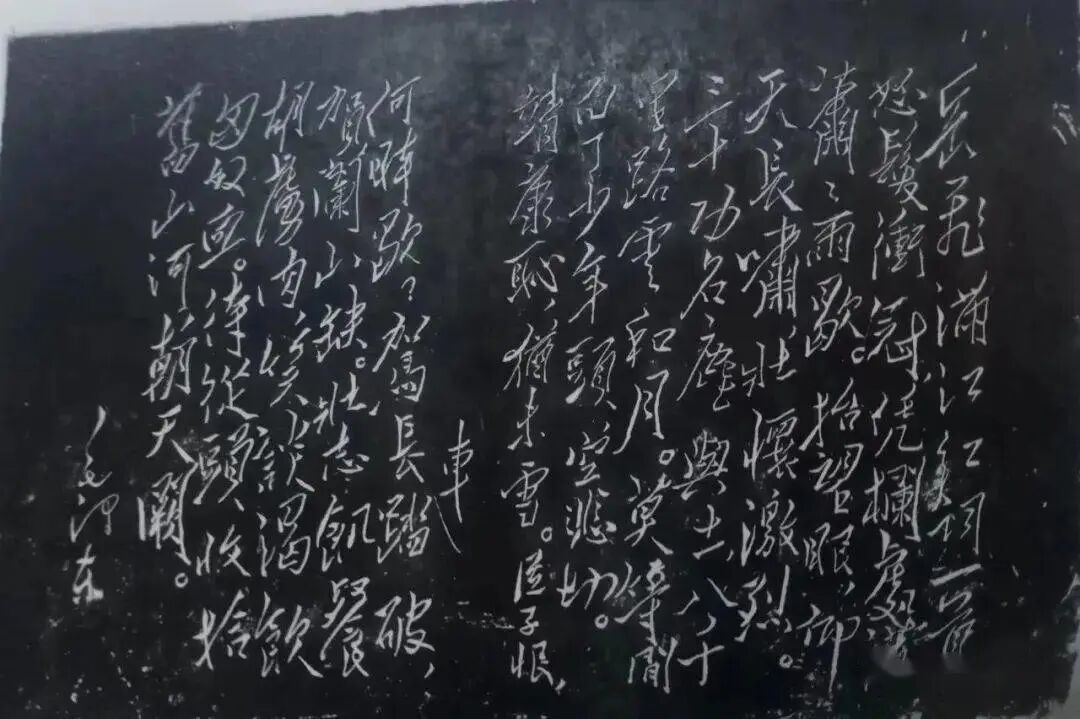 岳飛滿江紅詞一首
怒髮衝冠、凭欄處、
瀟〻雨歇。抬望眼、仰
天長嘯、壯懷激烈。
三十功名塵與土、八千
里路雲和月。莫等閒
白了少年頭、空悲切。
靖康恥、猶未雪。臣子恨，
車
何時歇〻駕長踏破，
賀蘭山缺。壯志飢餐
胡虜肉、笑談渴飲
匈奴血。待從頭、收拾
舊山河、朝天闕。
毛澤东